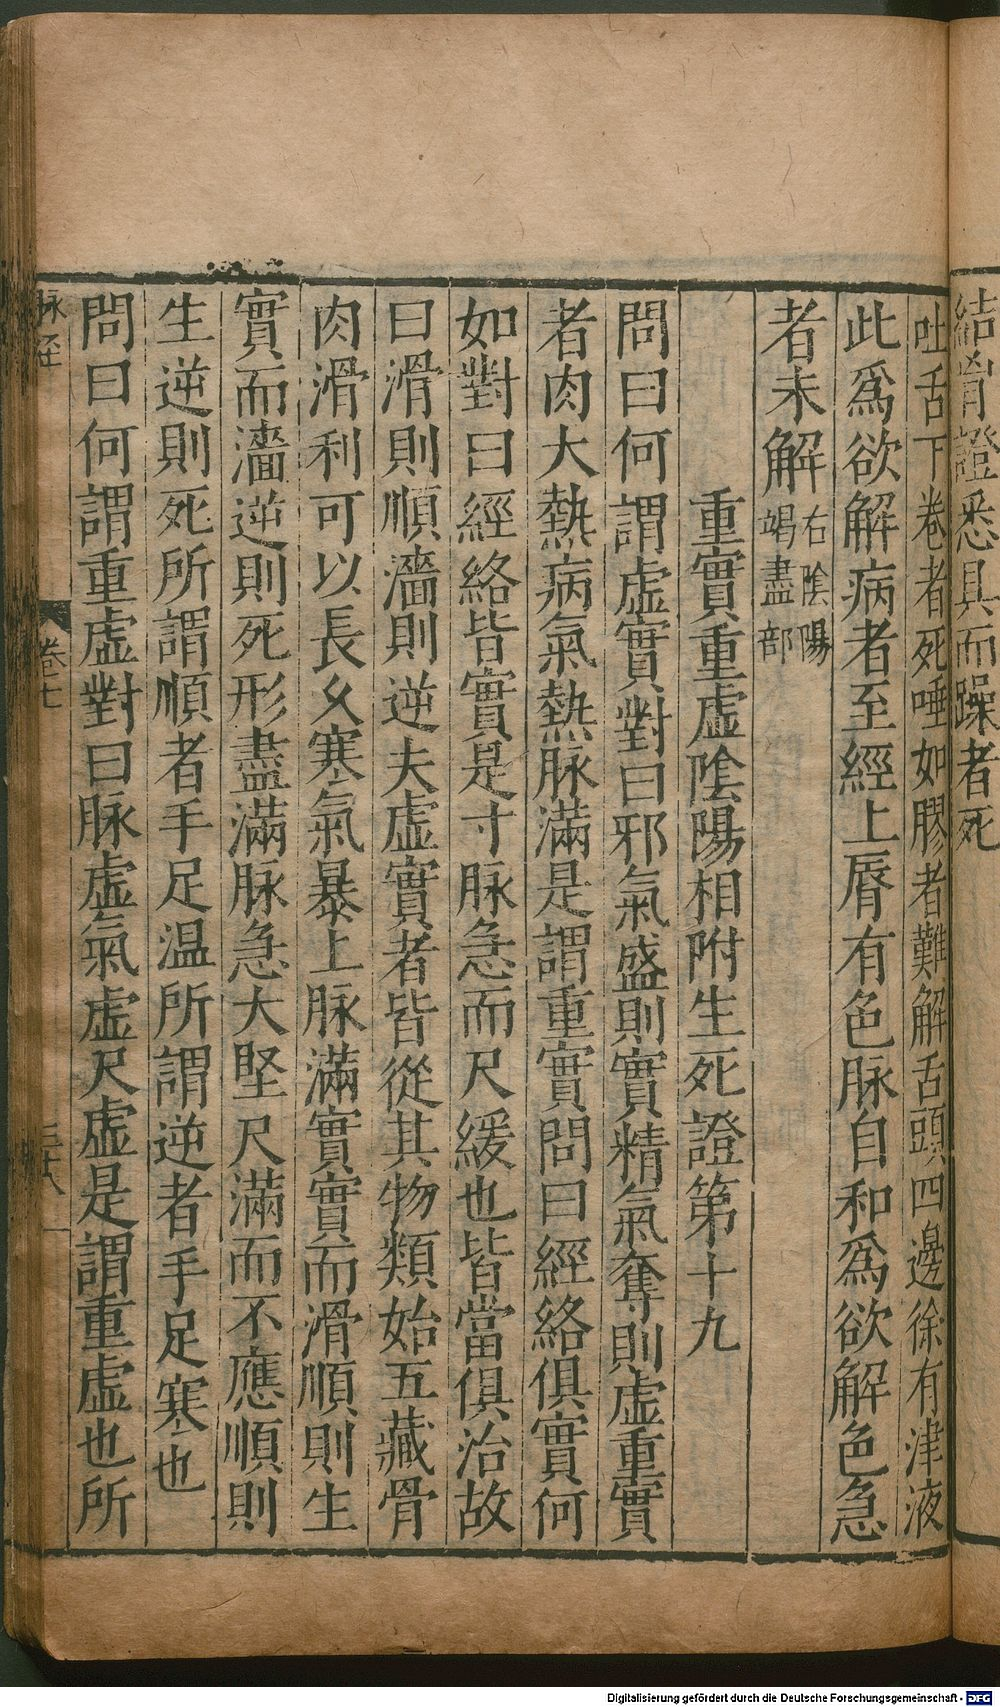 結胷證悉具而躁者死
吐舌下卷者死唾如膠者難解舌頭四邊徐有津液
此爲欲解病者至經上脣有色脉自和爲欲解色急
者未解右陰陽竭盡部
重實重虛陰陽相附生死證第十九
問曰何謂虛實對曰邪氣盛則實精氣奪則虛重實
者肉大熱病氣熱脉滿是謂重實問曰經絡俱實何
如對曰經絡皆實是寸脉急而尺緩也皆當俱治故
曰滑則順濇則逆夫虛實者皆從其物類始五藏骨
肉滑利可以長久寒氣暴上脉滿實實而滑順則生
實而濇逆則死形盡滿脉急大堅尺滿而不應順則
生逆則死所謂順者手足温所謂逆者手足寒也
問曰何謂重虛對曰脉虛氣虛尺虛是謂重虛也所
脉經
卷七
三十八
Digitalisierung gefördert durch die Deutsche Forschungsgemeinschaft - DFG